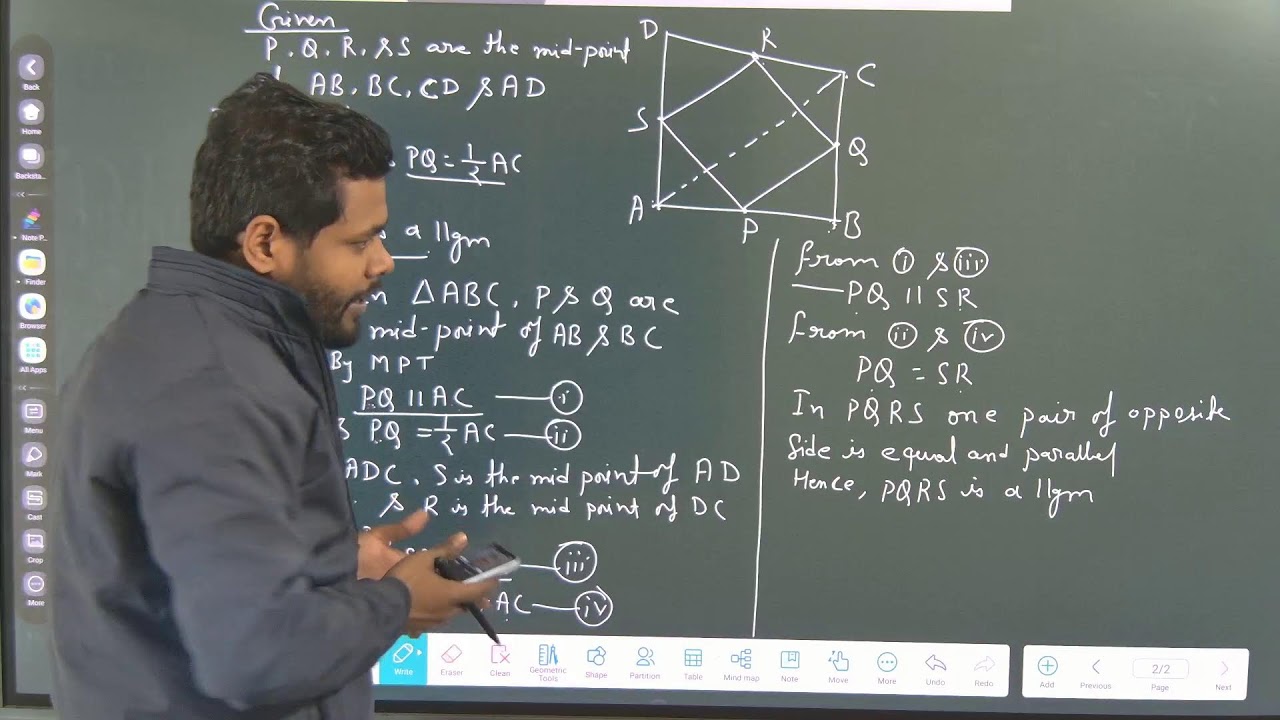 Given
P, Q, R, & S are the mid-point
AB, BC, CD & AD
PQ = 1/2 AC
is a ||gm
In △ABC, P & Q are
mid-point of AB & BC
By MPT
PQ || AC —— (i)
& PQ = 1/2 AC —— (ii)
ADC, S is the mid point of AD
& R is the mid point of DC
(iii)
AC —— (iv)
D
R
C
S
Q
A
P
B
from (i) & (iii)
PQ || SR
from (ii) & (iv)
PQ = SR
In PQRS one pair of opposite
Side is equal and parallel
Hence, PQRS is a ||gm
Back
Home
Backsta...
Note P...
Finder
Browser
All Apps
Menu
Mark
Cast
Crop
More
Write
Eraser
Clean
Geometric Tools
Shape
Partition
Table
Mind map
Note
Move
More
Undo
Redo
Add
Previous
2/2
Page
Next